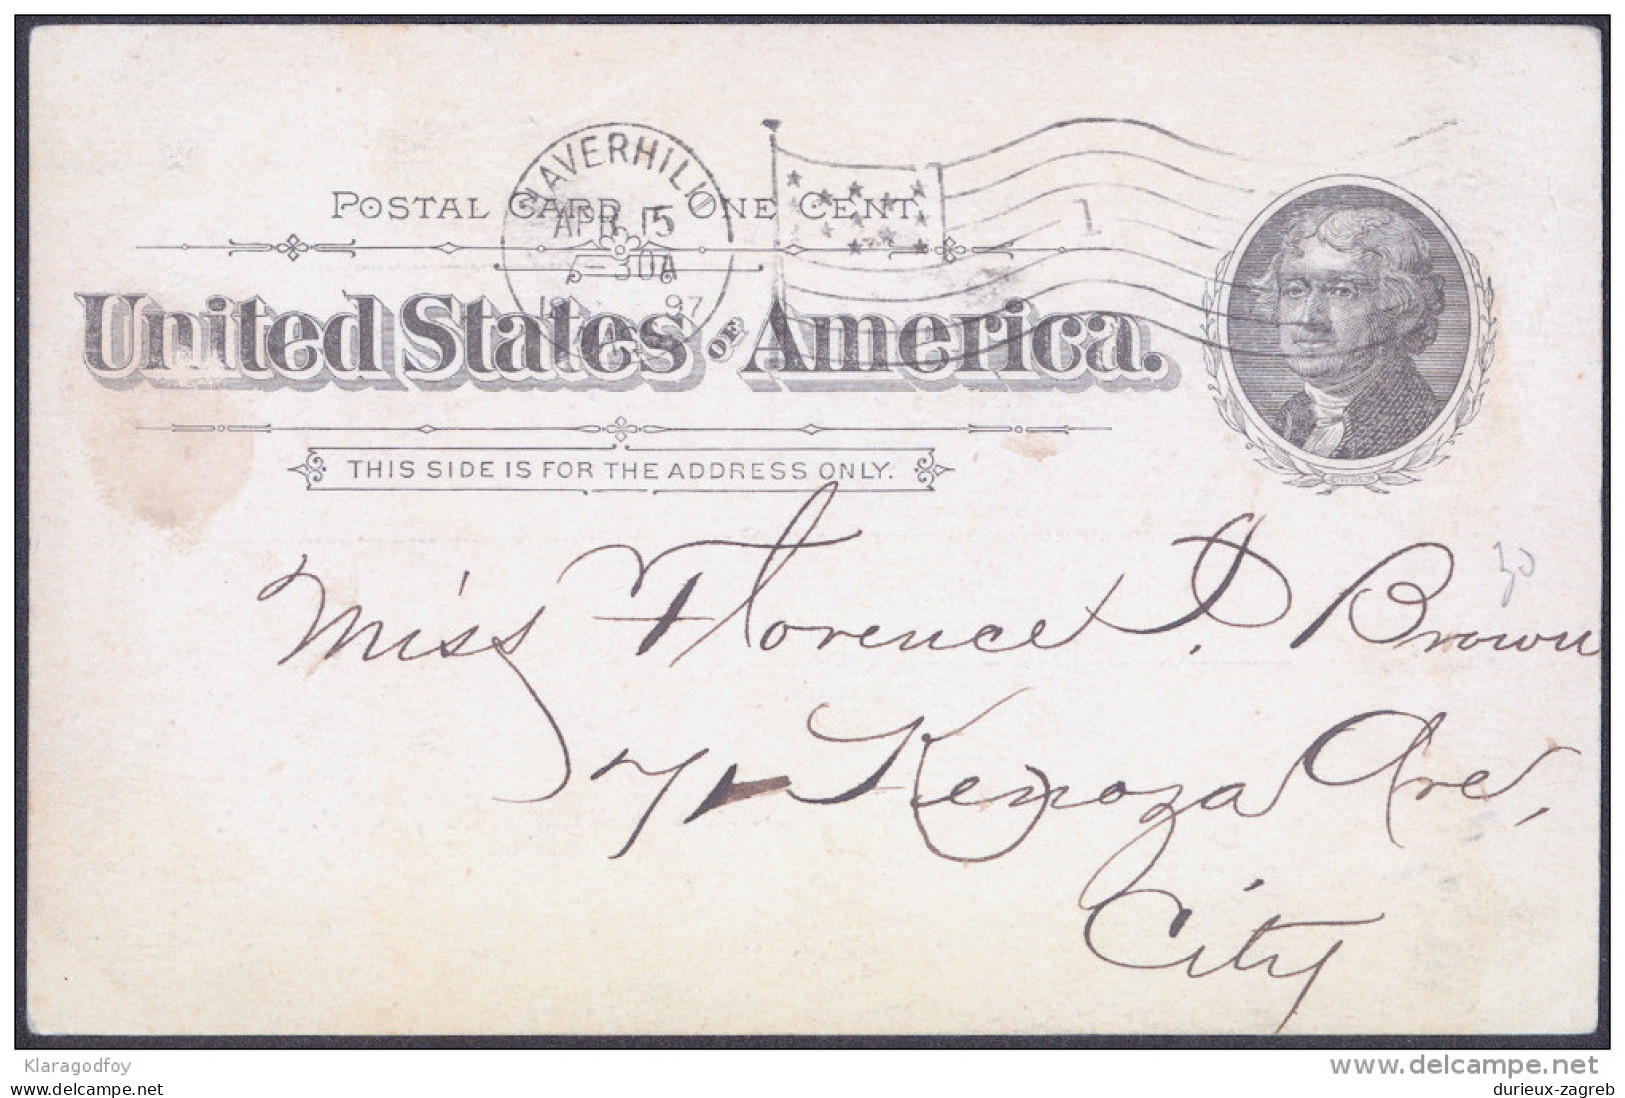 HAVERHILL
APR 15
-30A
97
POSTAL CARD ONE CENT
1
United States OF America.
THIS SIDE IS FOR THE ADDRESS ONLY.
30
Miss Florence I. Brown
Kenoza Ave,
City
Klaragodfoy
delcampe.net
durieux-zagreb